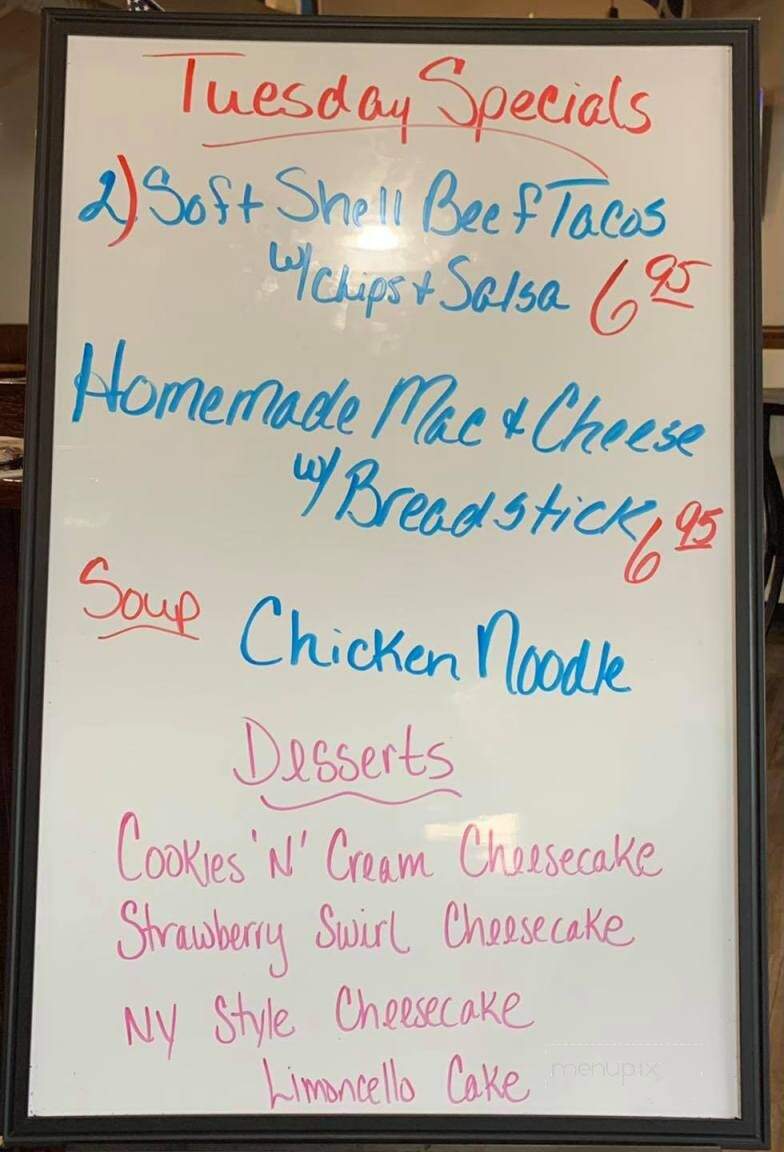 Tuesday Specials
2) Soft Shell Beef Tacos
w/ chips + Salsa 6 95
Homemade Mac & Cheese
w/ Breadstick 6 95
Soup Chicken Noodle
Desserts
Cookies 'N' Cream Cheesecake
Strawberry Swirl Cheesecake
NY Style Cheesecake
Limoncello Cake
menupix